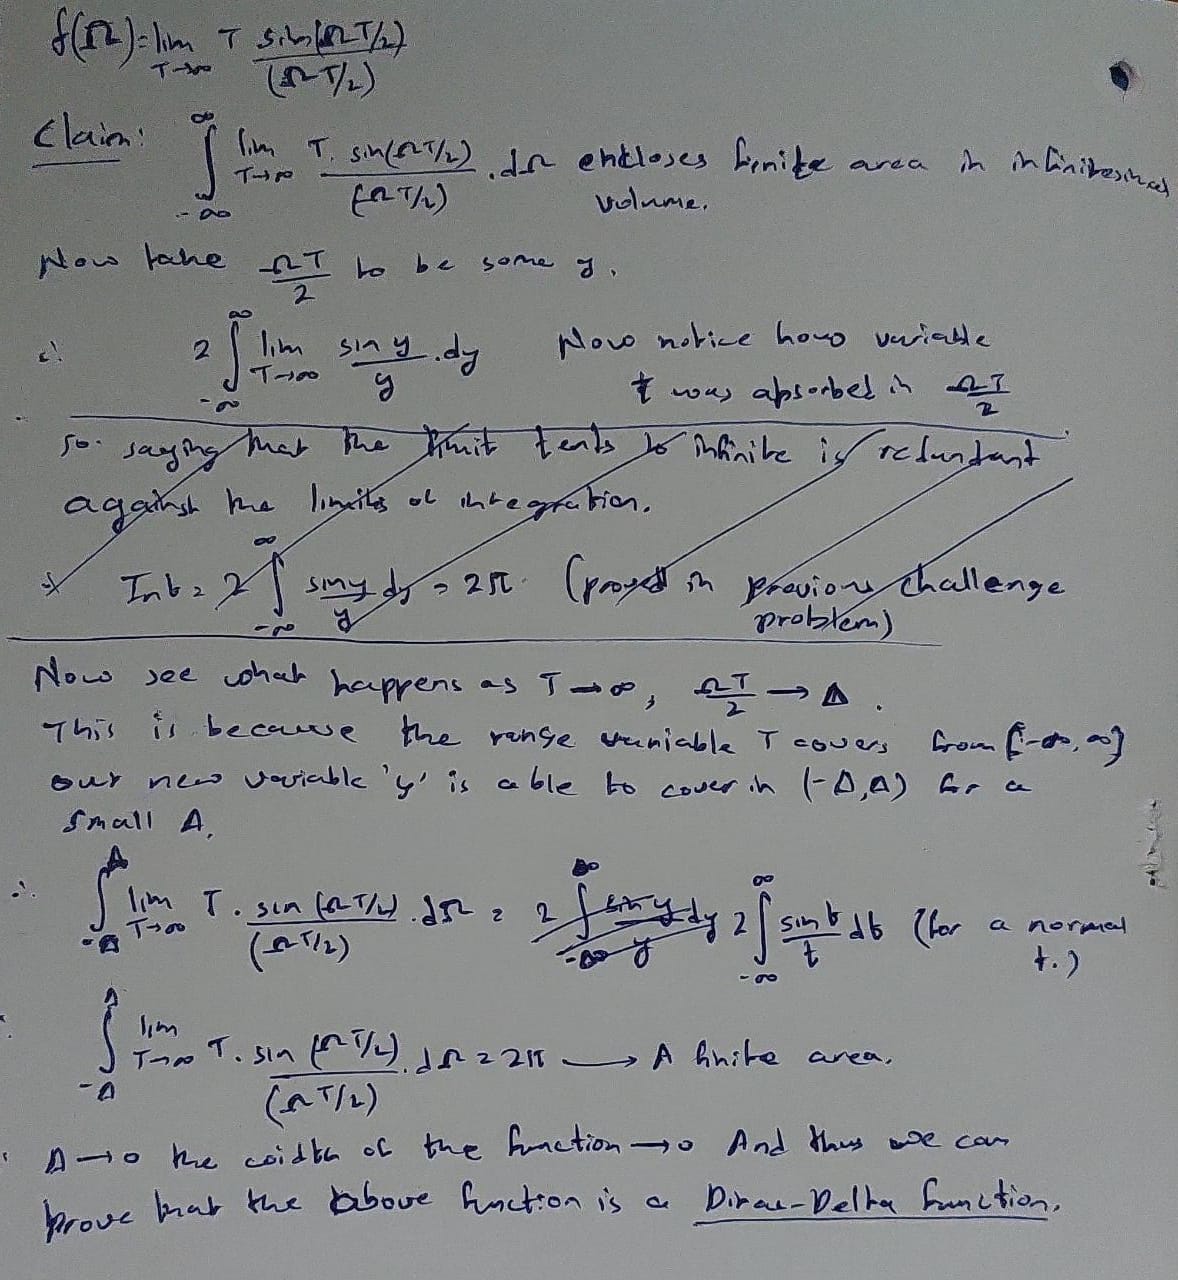 f(Ω) = lim T→∞ T sin(ΩT/2) / (ΩT/2)
Claim: ∫_{-∞}^{∞} lim T→∞ T. sin(ΩT/2) / (ΩT/2) .dΩ encloses finite area in infinitesimal
volume.
Now take ΩT/2 to be some y.
∴ 2 ∫_{-∞}^{∞} lim T→∞ sin y / y .dy Now notice how variable
t was absorbed in ΩT/2
so saying that the limit tends to infinite is redundant
against the limits of integration.
Int = 2 ∫_{-∞}^{∞} sin y / y dy = 2π (proved in previous challenge
problem)
Now see what happens as T→∞, ΩT/2 → Δ.
This is because the range variable T covers from [-∞, ∞]
our new variable 'y' is able to cover in (-Δ,Δ) for a
small Δ.
∴ ∫_{-Δ}^{Δ} lim T→∞ T. sin(ΩT/2) / (ΩT/2) .dΩ = 2 ∫_{-∞}^{∞} sin y / y dy 2 ∫_{-∞}^{∞} sin t / t dt (for a normal
t.)
∫_{-Δ}^{Δ} lim T→∞ T. sin(ΩT/2) / (ΩT/2) .dΩ = 2π → A finite area.
Δ→0 the width of the function →0 And thus we can
prove that the above function is a Dirac-Delta function.